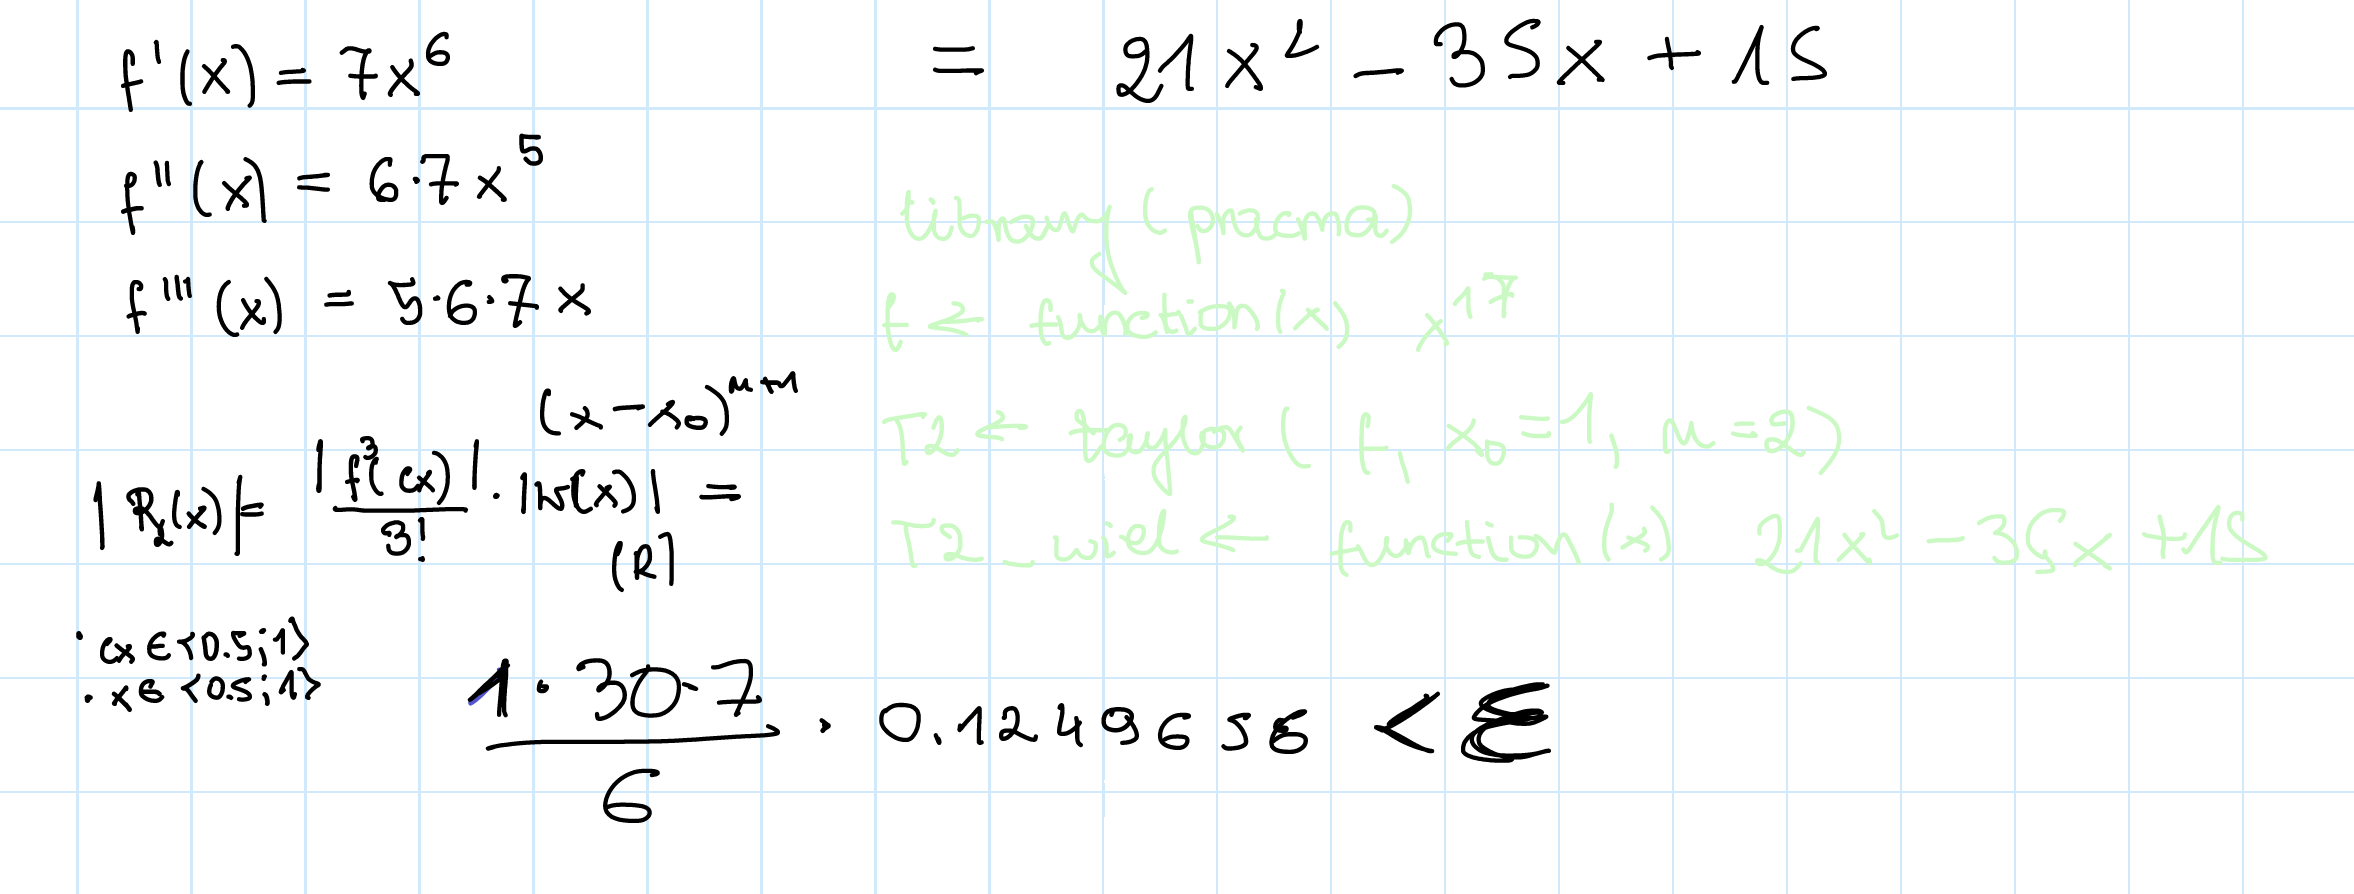 f'(x) = 7x⁶
= 21x² - 35x + 15
f''(x) = 6·7x⁵
f'''(x) = 5·6·7x
library(pracma)
f ← function(x) x^17
T2 ← taylor(f, x₀=1, n=2)
T2_wiel ← function(x) 21x² - 35x + 15
(x-x₀)ⁿ⁺¹
|R₂(x)| = |f³(cx)|/3! · |w(x)| =
(R)
· cx ∈ <0.5;1>
· x ∈ <0.5;1>
1·30·7/6 · 0.1249658 < ε